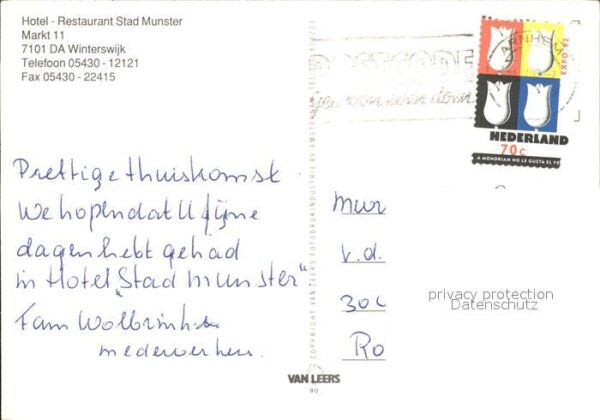 Hotel - Restaurant Stad Munster
Markt 11
7101 DA Winterswijk
Telefoon 05430 - 12121
Fax 05430 - 22415
ARNHEM
POSTCODE
EXPO '92
NEDERLAND
70c
A MONDRIAN NO LE GUSTA EL VE
Prettige thuiskomst
We hopen dat U fijne
dagen hebt gehad
in Hotel „Stad Munster"
Fam Wolbrink en
medewerkers.
Mur
v.d.
30c
Ro
privacy protection
Datenschutz
COPYRIGHT VAN LEER'S FOTODRUKINDUSTRIE BV AMSTERDAM
VAN LEERS
90